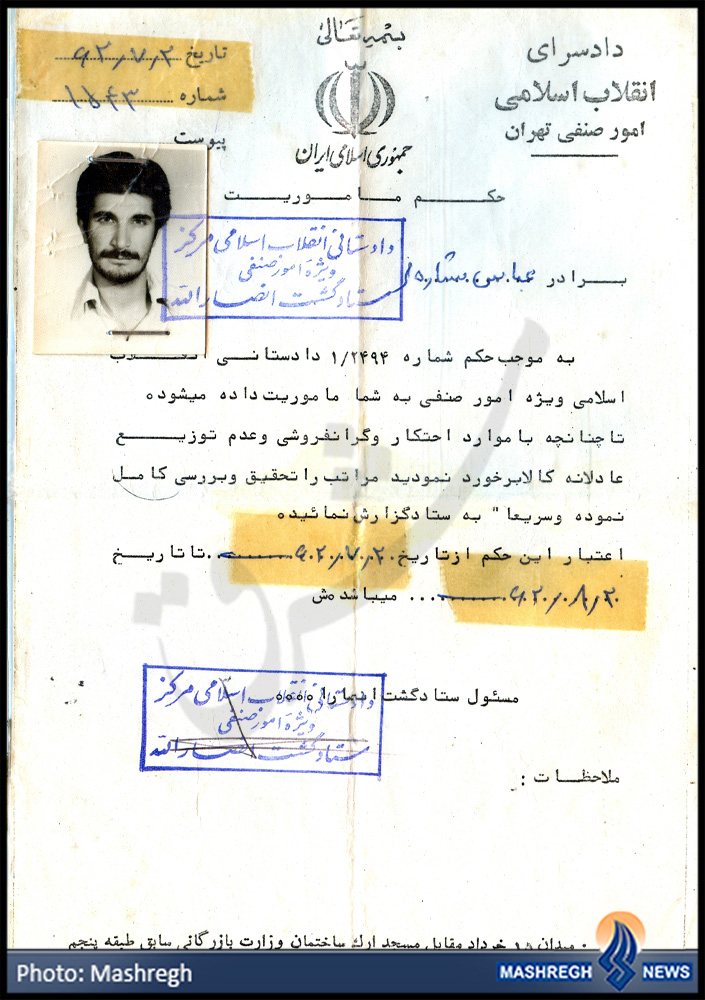 بسمه تعالی
دادسرای
انقلاب اسلامی
امور صنفی تهران
جمهوری اسلامی ایران
تاریخ ۶۲/۷/۲
شماره ۱۵۴۳
پیوست
حکم ماموریت
دادستانی انقلاب اسلامی مرکز
ویژه امور صنفی
ستاد گشت انصارالله
برادر عباس
به موجب حکم شماره ۱/۲۴۹۴ دادستانی انقلاب
اسلامی ویژه امور صنفی به شما ماموریت داده میشوده
تا چنانچه با موارد احتکار وگرانفروشی وعدم توزیع
عادلانه کالا برخورد نمودید مراتب را تحقیق وبررسی کامل
نموده وسریعا" به ستاد گزارش نمائیده
اعتبار این حکم از تاریخ ۶۲/۷/۲۰ تا تاریخ
۶۲/۸/۲۰ میباشد ه ش
مسئول ستاد گشت انصارا ه ه ه ه
دادستانی انقلاب اسلامی مرکز
ویژه امور صنفی
ستاد گشت انصارالله
ملاحظات :
: میدان ۱۵ خرداد مقابل مسجد ارک ساختمان وزارت بازرگانی سابق طبقه پنجم
مشرق
Photo: Mashregh
MASHREGH NEWS